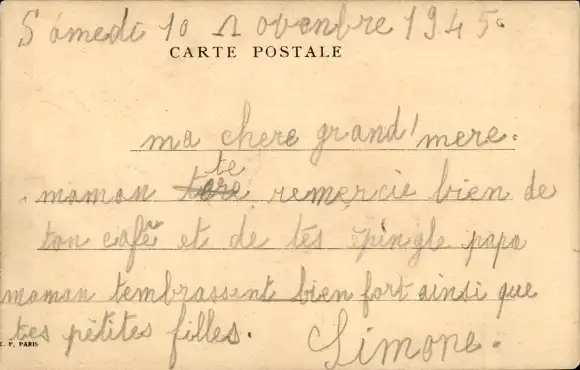 Samedi 10 Novembre 1945.
CARTE POSTALE
ma chere grand'mere.
maman te remercie bien de
ton café et de tes épingle papa
maman tembrassent bien fort ainsi que
tes pétites filles. Simone.
P, PARIS